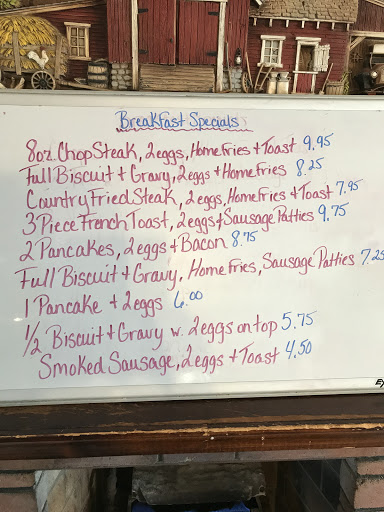 Breakfast Specials
8oz. Chop Steak, 2eggs, Home fries + Toast 9.95
Full Biscuit + Gravy, 2eggs + Home fries 8.25
Country Fried Steak, 2eggs, Home fries + Toast 7.95
3 Piece French Toast, 2eggs + Sausage Patties 9.75
2 Pancakes, 2eggs + Bacon 8.75
Full Biscuit + Gravy, Home fries, Sausage Patties 7.25
1 Pancake + 2eggs 6.00
1/2 Biscuit + Gravy w. 2eggs on top 5.75
Smoked Sausage, 2eggs + Toast 4.50